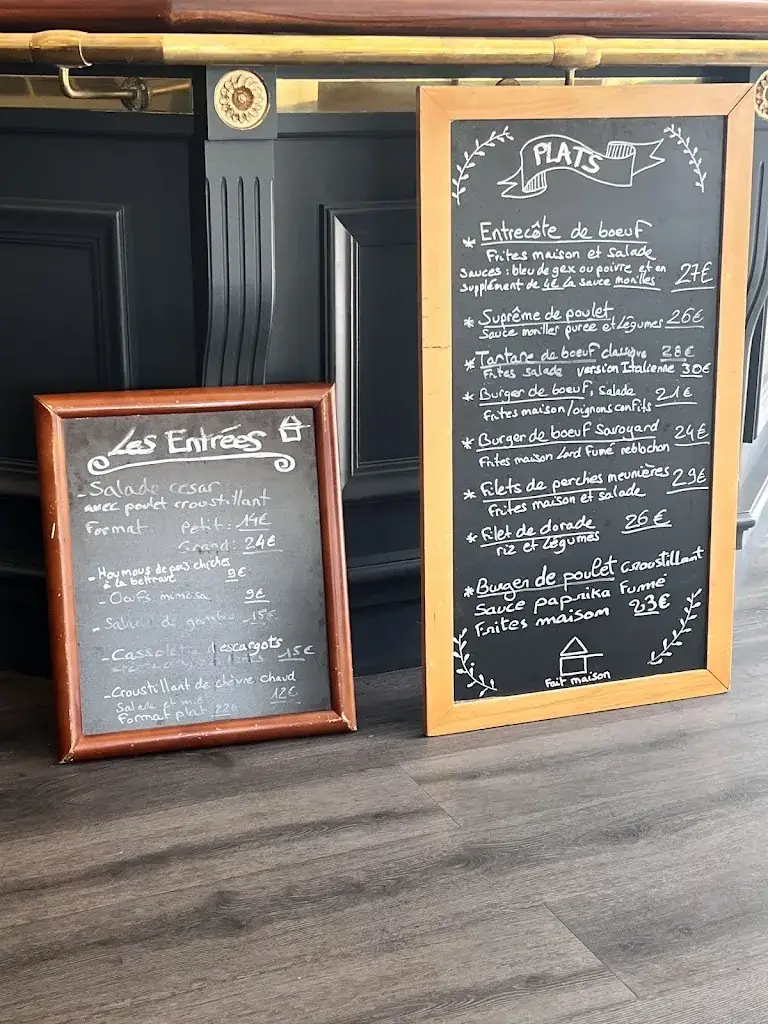 Les Entrées
- Salade cesar
avec poulet croustillant
Format: Petit: 14€
Grand: 24€
- Houmous de pois chiches
à la bettrave 9€
- Oeufs mimosa 9€
- Salade de gambas 15€
- Cassolette escargots
15€
- Croustillant de chèvre chaud
Salade et miel 12€
Format plat 22€
PLATS
* Entrecôte de boeuf
Frites maison et Salade
Sauces: bleu de gex ou poivre et en
supplément de 4€ la sauce morilles 27€
* Suprême de poulet 26€
Sauce moriller purée et Légumes
* Tartare de boeuf classique 28€
Frites Salade version Italienne 30€
* Burger de boeuf, Salade 21€
Frites maison/oignons confits
* Burger de boeuf Savoyard 24€
Frites maison Lard Fumé reblochon
* Filets de perches meunières 29€
Frites maison et salade
* Filet de dorade 26€
riz et Légumes
* Burger de poulet croustillant
Sauce paprika Fumé
Frites maison 23€
Fait maison